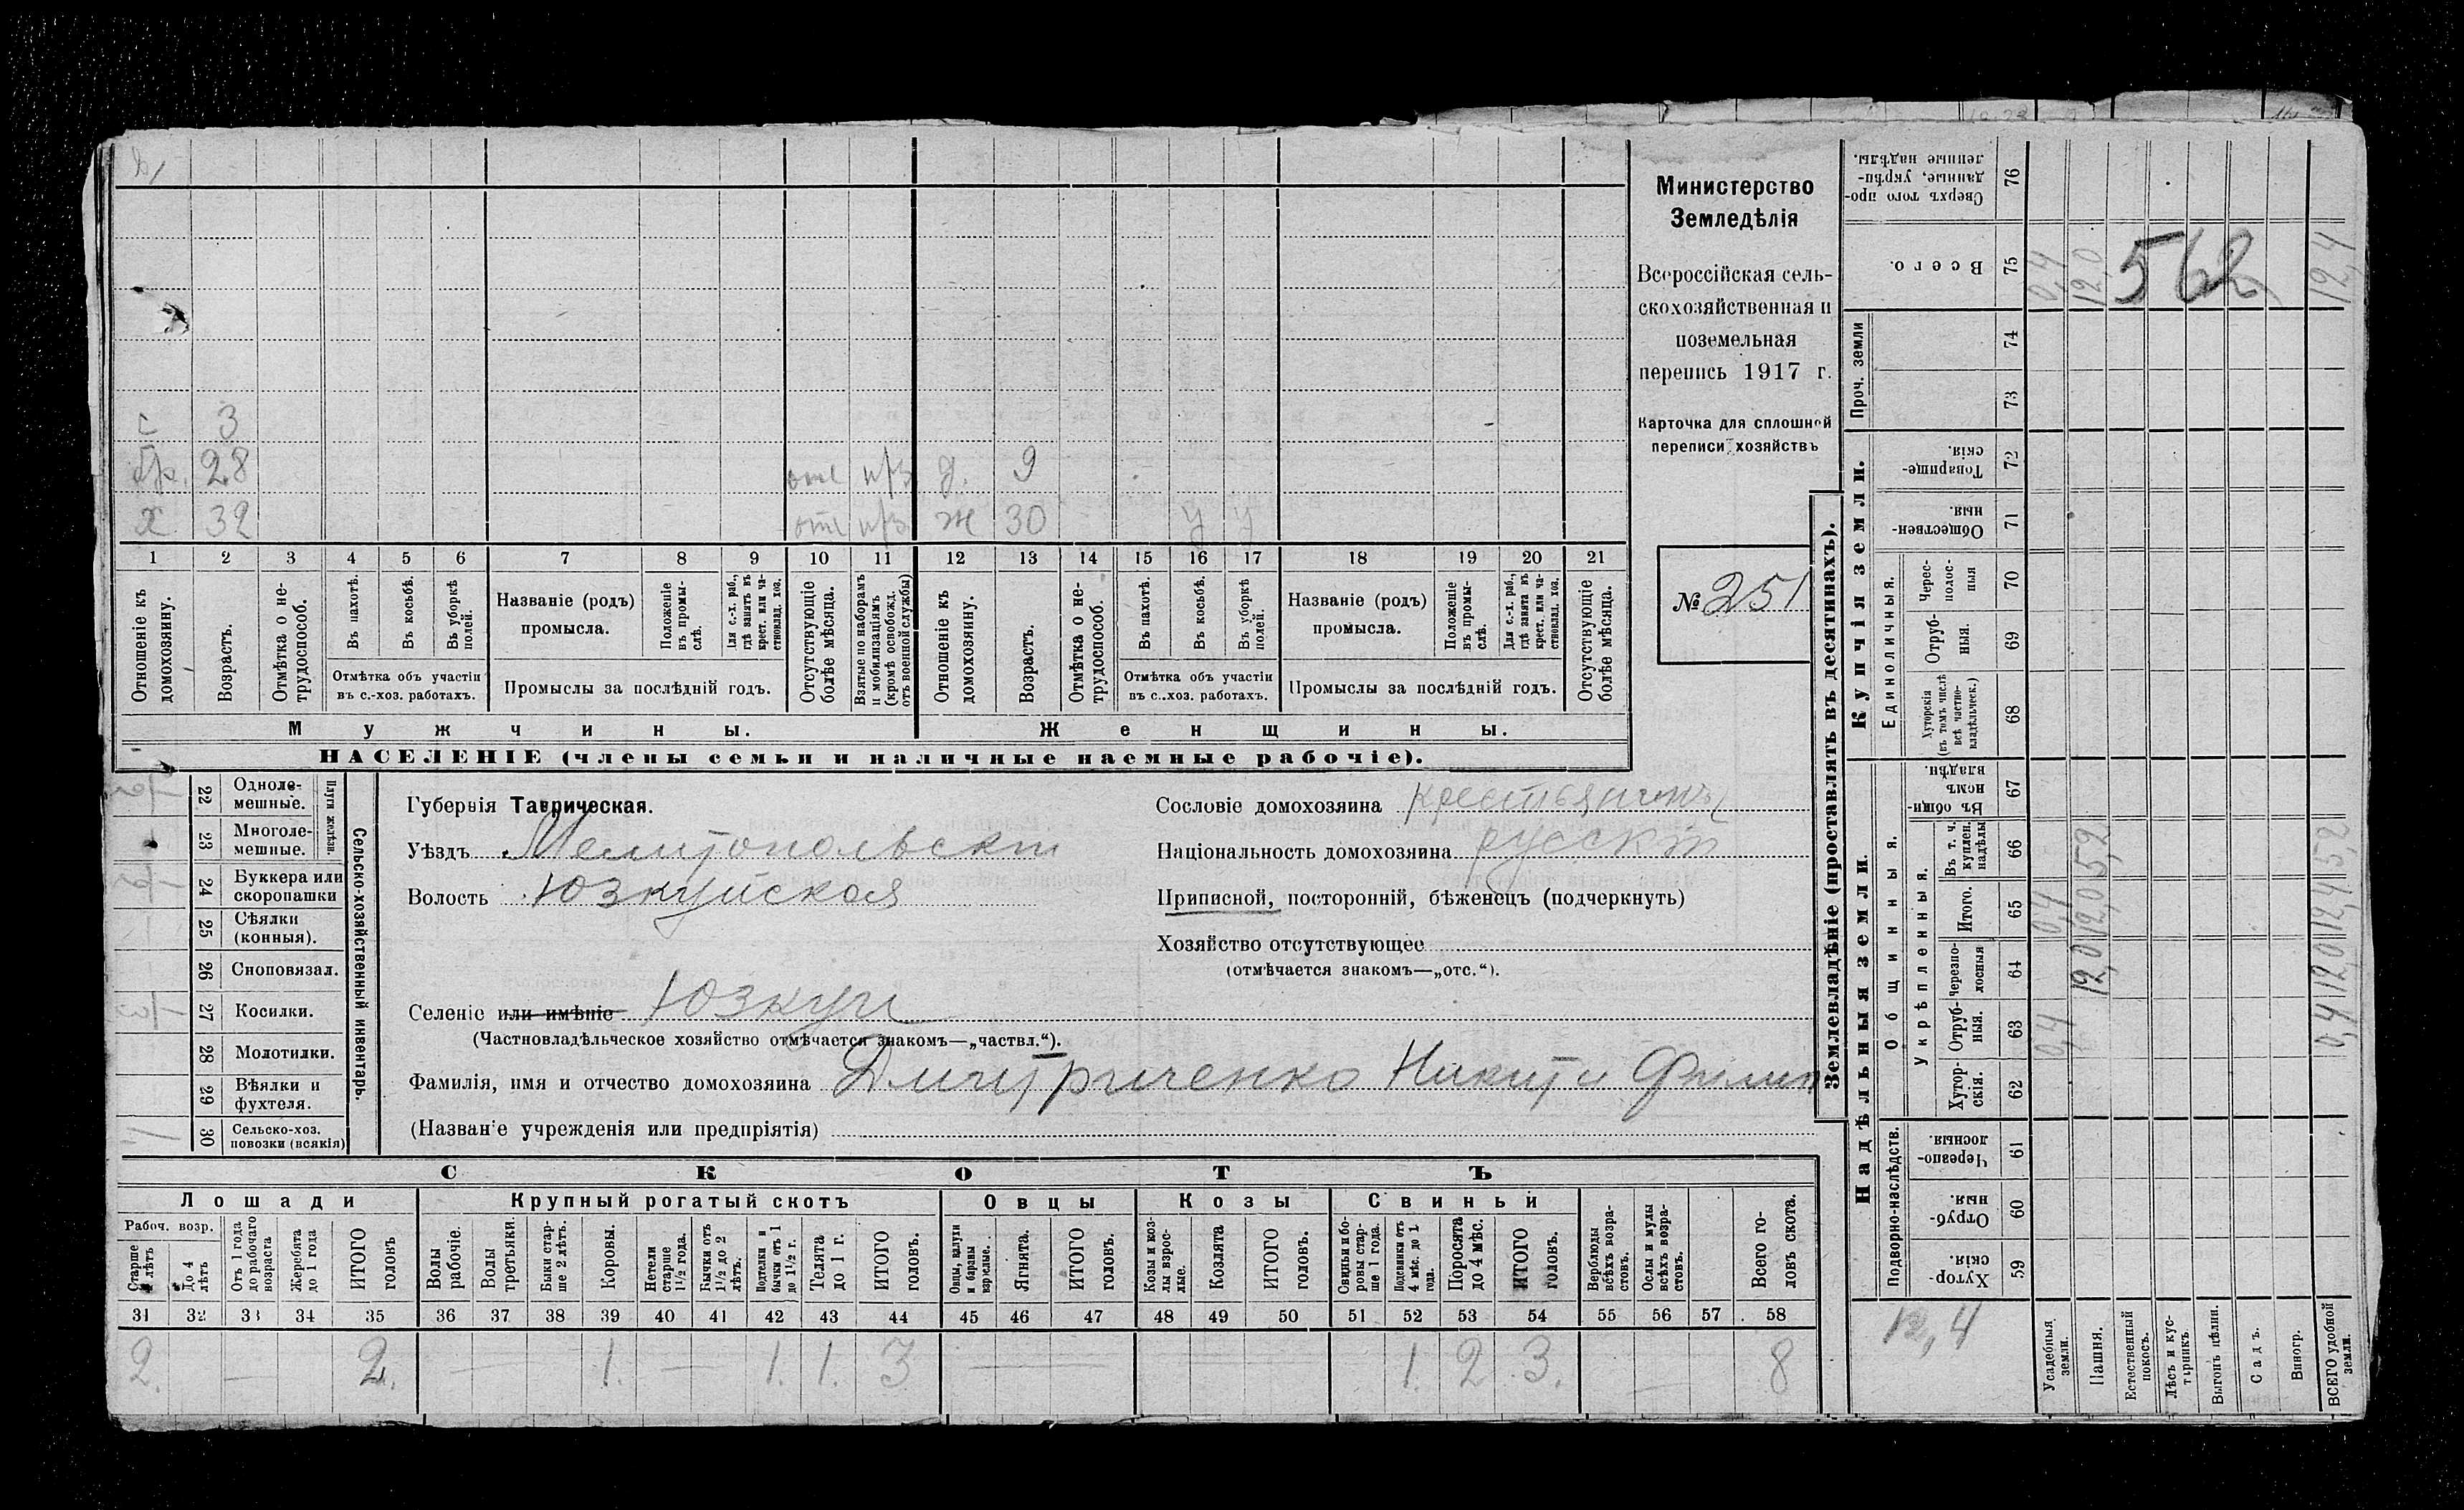 с 3
бр. 28 отс прз д. 9
х 32 отс прз ж 30 у у
1 2 3 4 5 6 7 8 9 10 11 12 13 14 15 16 17 18 19 20 21
Отношеніе къ домохозяину.
Возрастъ.
Отмѣтка о не-трудоспособ.
Въ пахотѣ.
Въ косьбѣ.
Въ уборкѣ полей.
Отмѣтка объ участіи
въ с.-хоз. работахъ.
Названіе (родъ)
промысла.
Положеніе въ промы-слѣ.
Для с.-х. раб., гдѣ занятъ въ крест. или ча-стновлад. хоз.
Промыслы за послѣдній годъ.
Отсутствующіе болѣе мѣсяца.
Взятые по наборамъ и мобилизаціямъ (кромѣ освобожд. отъ военной службы)
Отношеніе къ домохозяину.
Возрастъ.
Отмѣтка о не-трудоспособ.
Въ пахотѣ.
Въ косьбѣ.
Въ уборкѣ полей.
Отмѣтка объ участіи
въ с.-хоз. работахъ.
Названіе (родъ)
промысла.
Положеніе въ промы-слѣ.
Для с.-х. раб., гдѣ занята въ крест. или ча-стновлад. хоз.
Промыслы за послѣдній годъ.
Отсутствующіе болѣе мѣсяца.
Мужчины.
Женщины.
НАСЕЛЕНІЕ (члены семьи и наличные наемные рабочіе).
Министерство
Земледѣлія
Всероссійская сель-
скохозяйственная и
поземельная
перепись 1917 г.
Карточка для сплошной
переписи хозяйствъ
№ 251
22 Однолемешные.
23 Многолемешные.
Плуги желѣзн.
24 Буккера или скоропашки
25 Сѣялки (конныя).
26 Сноповязал.
27 Косилки.
28 Молотилки.
29 Вѣялки и фухтеля.
30 Сельско-хоз. повозки (всякія)
1
Сельско-хозяйственный инвентарь.
Губернія Таврическая.
Уѣздъ Мелитопольскій
Волость Юзкуйская
Селеніе или имѣніе Юзкуи
(Частновладѣльческое хозяйство отмѣчается знакомъ—„частвл.“).
Фамилія, имя и отчество домохозяина Дмитриченко Никита Филип
(Названіе учрежденія или предпріятія)
Сословіе домохозяина крестьянинъ
Національность домохозяина русскій
Приписной, посторонній, бѣженецъ (подчеркнуть)
Хозяйство отсутствующее
(отмѣчается знакомъ—„отс.“).
СКОТЪ
Лошади Крупный рогатый скотъ Овцы Козы Свиньи
Рабоч. возр.
Старше 4 лѣтъ
До 4 лѣтъ
Отъ 1 года до рабочаго возраста
Жеребята до 1 года
ИТОГО головъ
Волы рабочіе.
Волы третьяки.
Быки стар-ше 2 лѣтъ.
Коровы.
Нетели старше 1½ года.
Бычки отъ 1½ до 2 лѣтъ.
Подтелки и бычки отъ 1 до 1½ г.
Телята до 1 г.
ИТОГО головъ.
Овцы, валухи и бараны взрослые.
Ягнята.
ИТОГО головъ.
Козы и коз-лы взрос-лые.
Козлята
ИТОГО головъ.
Свиньи и бо-ровы стар-ше 1 года.
Подсвинки отъ 4 мѣс. до 1 года.
Поросята до 4 мѣс.
ИТОГО головъ.
Верблюды всѣхъ возра-стовъ.
Ослы и мулы всѣхъ возра-стовъ.
Всего го-ловъ скота.
31 32 33 34 35 36 37 38 39 40 41 42 43 44 45 46 47 48 49 50 51 52 53 54 55 56 57 58
2. — 2. — — 1. — 1. 1. 3 — — 1. 2 3. — 8
Землевладѣніе (проставлять въ десятинахъ).
Надѣльныя земли.
Купчія земли.
Проч. земли
Подворно-наслѣдств.
Общинныя.
Укрѣпленныя.
Единоличныя.
Сверхъ того про-данные, укрѣп-ленные надѣлы. 76
Всего. 75
74
73
Товарище-скія. 72
Обществен-ныя. 71
Черес-полос-ныя 70
Отруб-ныя. 69
Хуторскія (въ томъ числѣ всѣ частно-владѣльческ.) 68
Въ общи-номъ владѣн. 67
Въ т. ч. куплен. надѣлы 66
Итого. 65
Черезпо-лосныя 64
Отруб-ныя. 63
Хутор-скія. 62
Черезпо-лосныя. 61
Отруб-ныя. 60
Хутор-скія. 59
12,4
Усадебныя земли. 0,4 0,4 0,4
Пашня. 12,0 12,0 5,2 12,0
562
Естественный покосъ.
Лѣсъ и кус-тарникъ.
Выгонъ цѣлин.
Садъ.
Виногр.
ВСЕГО удобной земли. 0,4 12,0 12,4 5,2 12,4